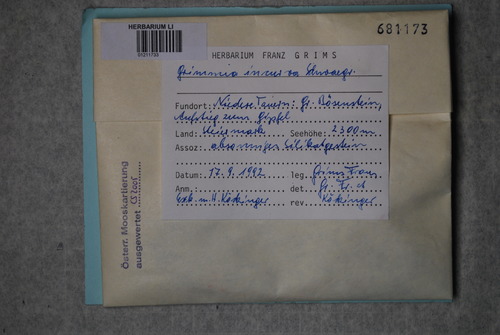 HERBARIUM LI
681173
HERBARIUM FRANZ GRIMS
Grimmia incurva Schwaegr.
Fundort: Niedere Tauern: Gr. Bösenstein,
Aufstieg zum Gipfel
Land: Steiermark Seehöhe: 2300m
Assoz: Silikatgestein
Datum: 17.9.1992 leg. Grims Franz
Anm.: det. Gr. Fr. d
Exk. m. H. Köckinger rev. Köckinger
Österr. Mooskartierung
ausgewertet